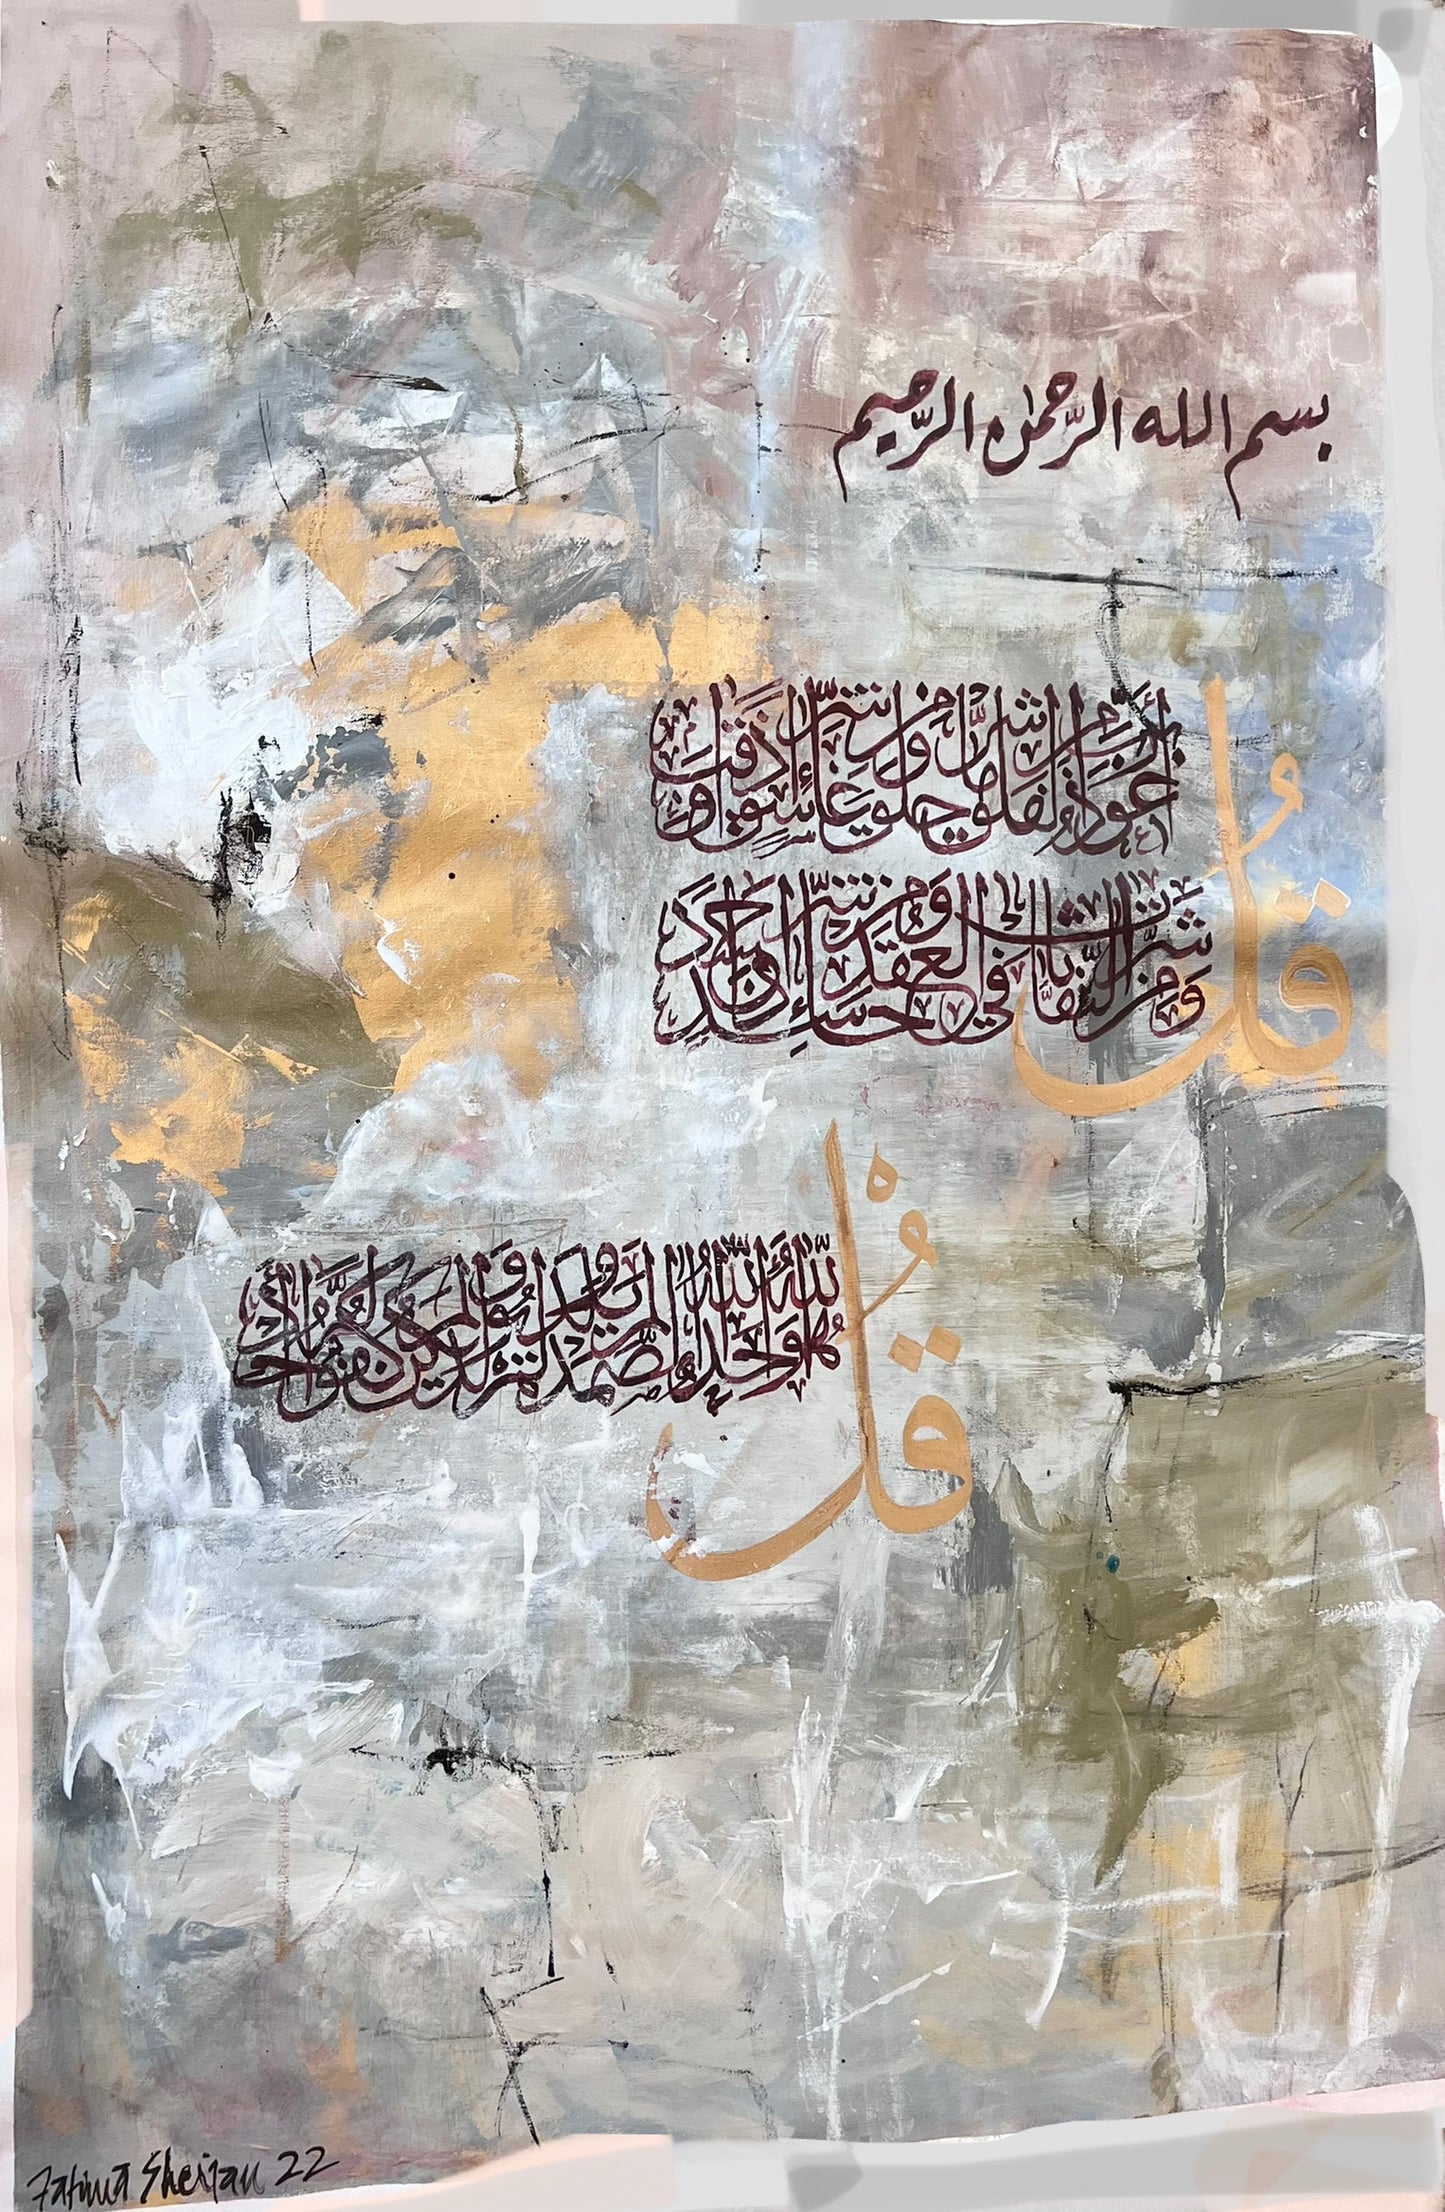 بسم الله الرّحمٰن الرّحيم
قُل أعوذ برب الفلق من شر ما خلق ومن شر غاسق إذا وقب
ومن شر النفاثات في العقد ومن شر حاسد إذا حسد
قُلْ هو الله أحد الله الصمد لم يلد ولم يولد ولم يكن له كفوا أحد
22